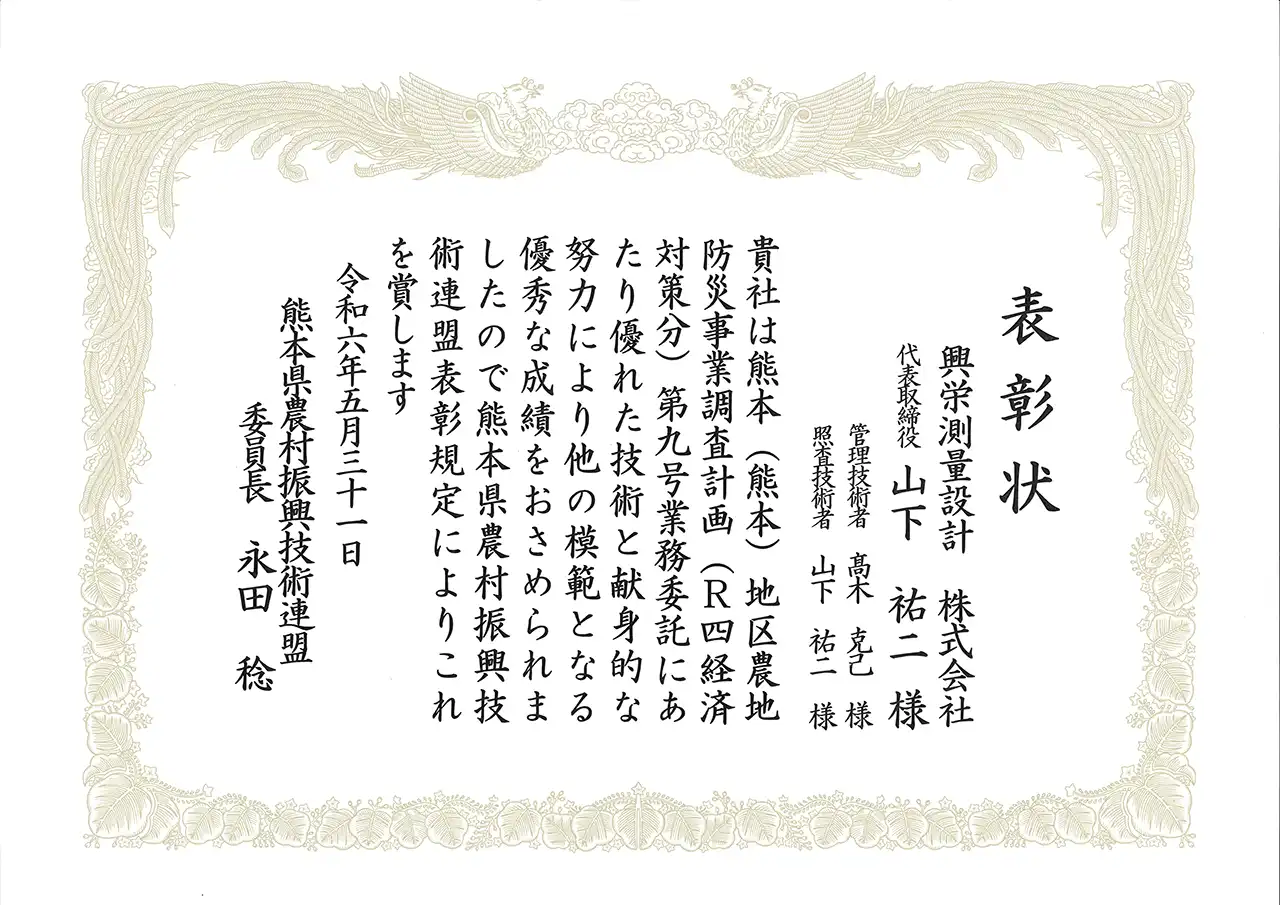 表彰状
興栄測量設計 株式会社
代表取締役 山下 祐二 様
管理技術者 髙木 克己 様
照査技術者 山下 祐二 様
貴社は熊本（熊本）地区農地
防災事業調査計画（R四経済
対策分）第九号業務委託にあ
たり優れた技術と献身的な
努力により他の模範となる
優秀な成績をおさめられま
したので熊本県農村振興技
術連盟表彰規定によりこれ
を賞します
令和六年五月三十一日
熊本県農村振興技術連盟
委員長 永田 稔